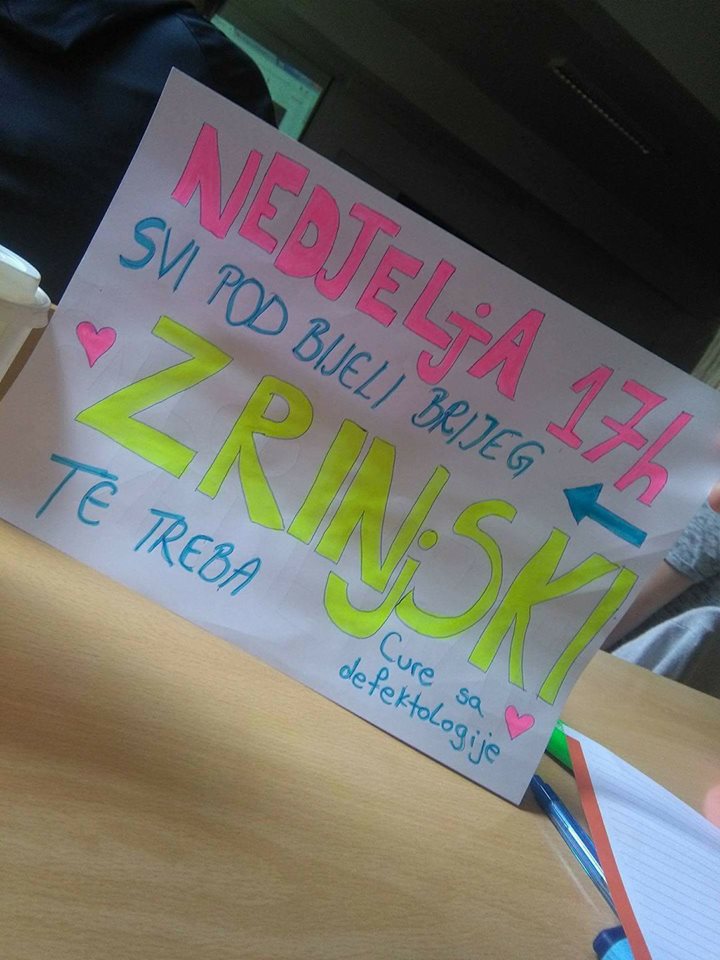 NEDJELjA 17h
SVI POD BIJELI BRIJEG
ZRINjSKI
TE TREBA
Cure sa
defektologije